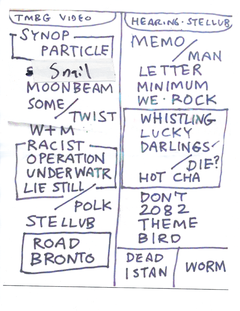 TMBG VIDEO
SYNOP
PARTICLE
S Snail
MOONBEAM
SOME/
TWIST
W+M
RACIST
OPERATION
UNDERWATR
LIE STILL
/POLK
STELLUB
ROAD
BRONTO
HEARING·STELLUB
MEMO
/MAN
LETTER
MINIMUM
WE·ROCK
WHISTLING
LUCKY
DARLINGS
/DIE?
HOT CHA
DON'T
2082
THEME
BIRD
DEAD
ISTAN
WORM